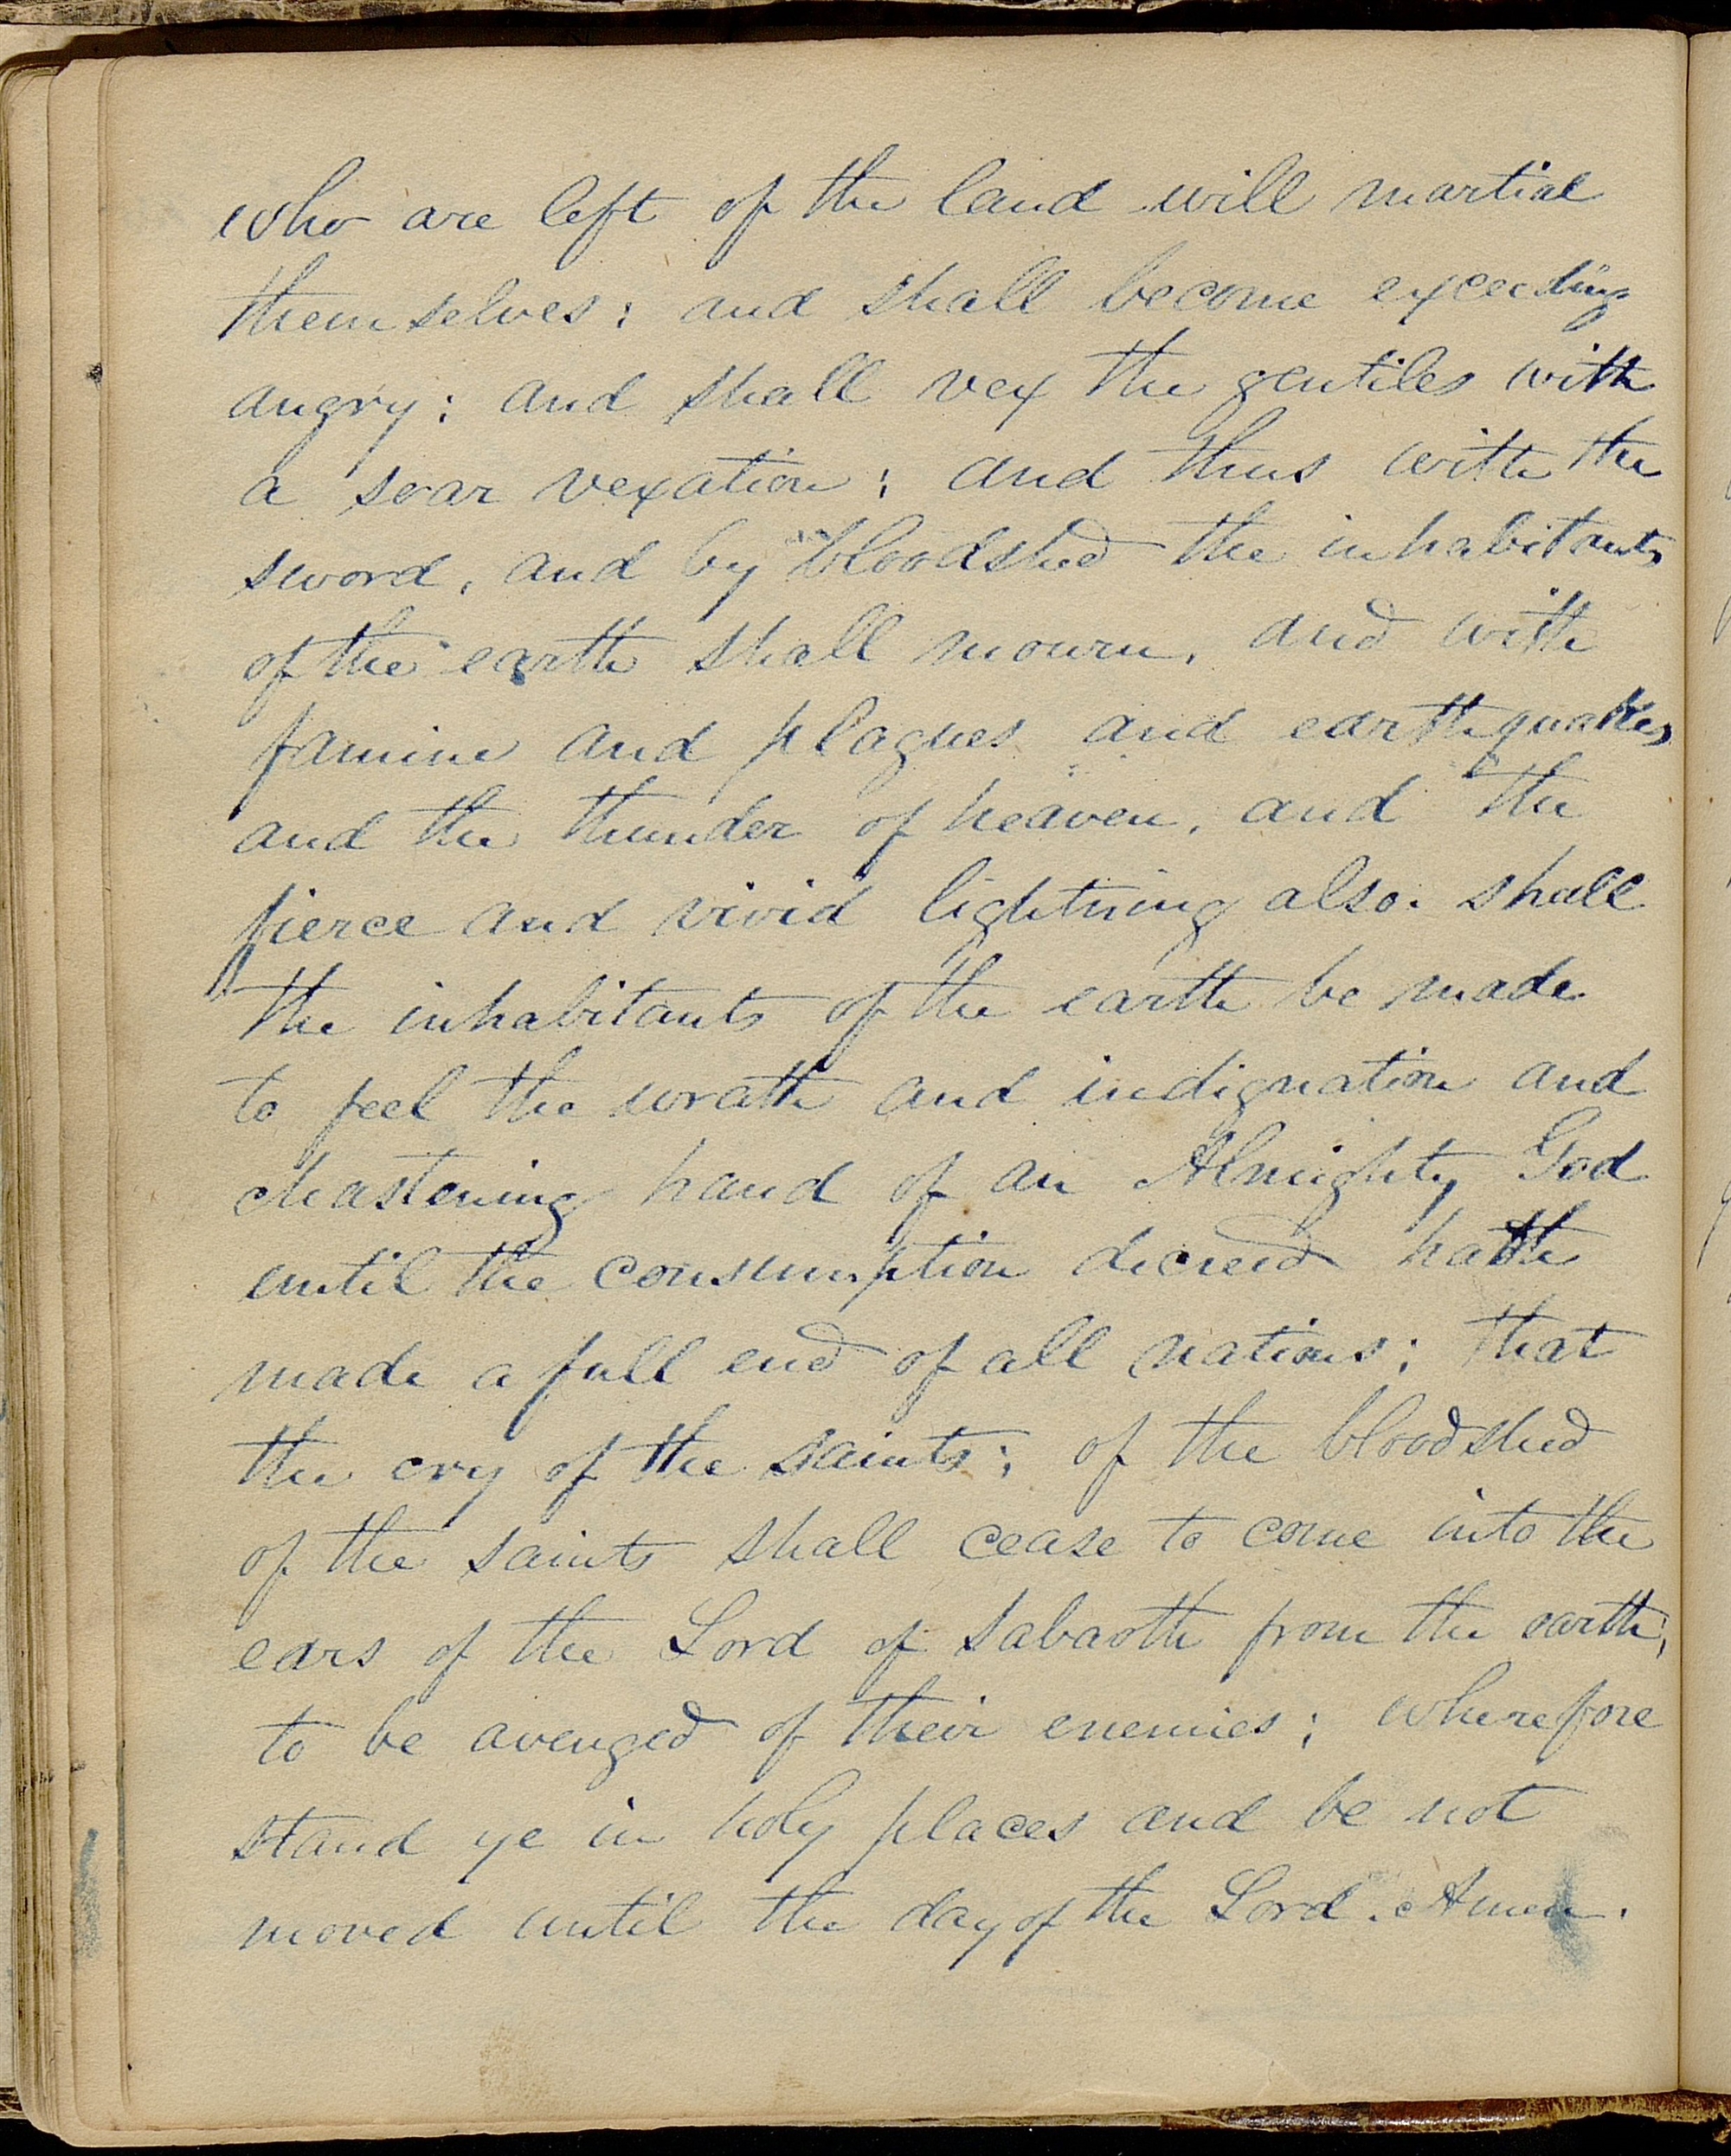 who are left of the land will martial
themselves; and shall become exceeding
angry; and shall vex the gentiles with
a soar vexation; and thus with the
sword, and by bloodshed the inhabitants
of the earth shall mourn, and with
famine and plagues and earthquakes
and the thunder of heaven, and the
fierce and vivid lightning also. shall
the inhabitants of the earth be made
to feel the wrath and indignation and
chastening hand of an Almighty God
until the consumption decreed hath
made a full end of all nations; that
the cry of the saints; of the bloodshed
of the saints shall cease to come into the
ears of the Lord of Sabaoth from the earth,
to be avenged of their enemies; wherefore
stand ye in holy places and be not
moved until the day of the Lord. Amen.